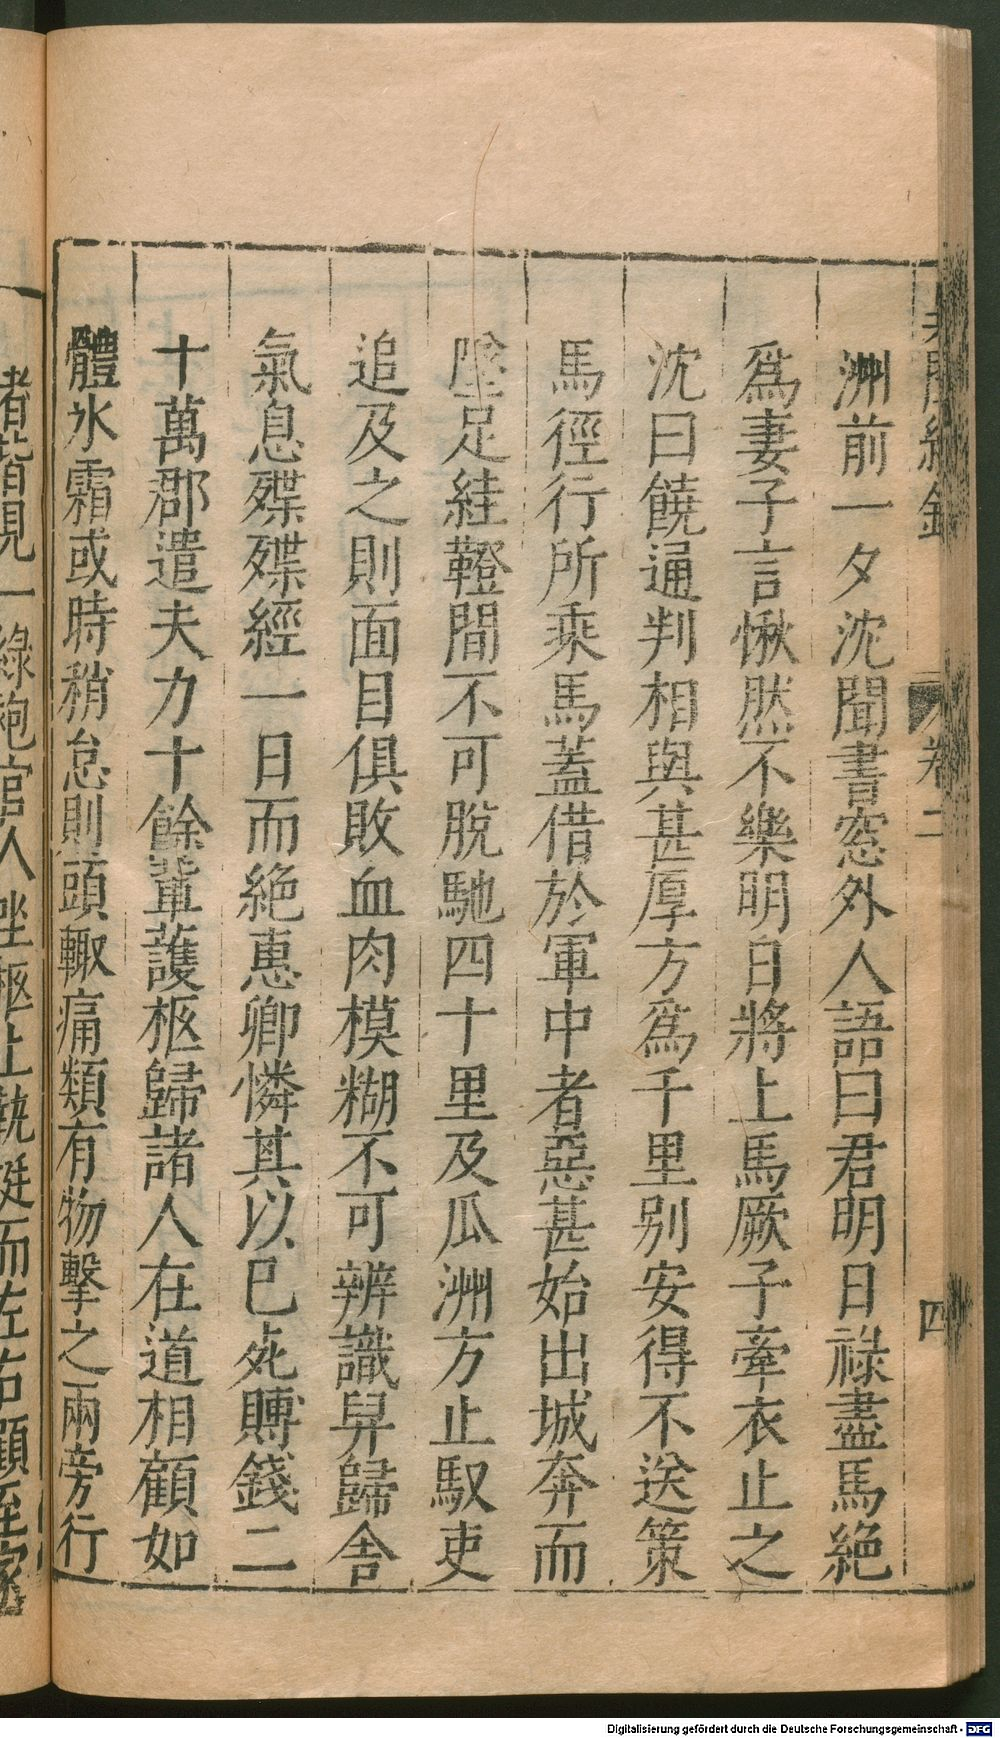 洲前一夕沈聞書窓外人語曰君明日祿盡馬絶
爲妻子言愀然不樂明日將上馬厥子牽衣止之
沈曰饒通判相與甚厚方爲千里别安得不送策
馬徑行所乘馬蓋借於軍中者惡甚始出城奔而
墜足絓鞾間不可脫馳四十里及瓜洲方止馭吏
追及之則面目俱敗血肉模糊不可辨識舁歸舎
氣息殜殜經一日而絶惠卿憐其以已死賻錢二
十萬郡遣夫力十餘輩護柩歸諸人在道相顧如
體氷霜或時稍怠則頭輙痛類有物擊之兩旁行
卷二
四
者皆見一綠袍官人坐柩上執梃而左右顧至家
Digitalisierung gefördert durch die Deutsche Forschungsgemeinschaft - DFG